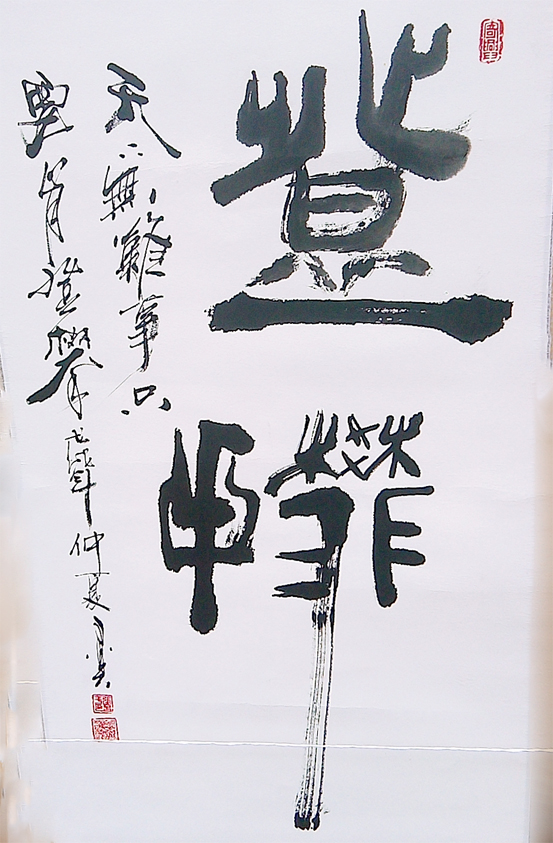 登攀
天下無難事只
要肯登攀戊戌年仲夏